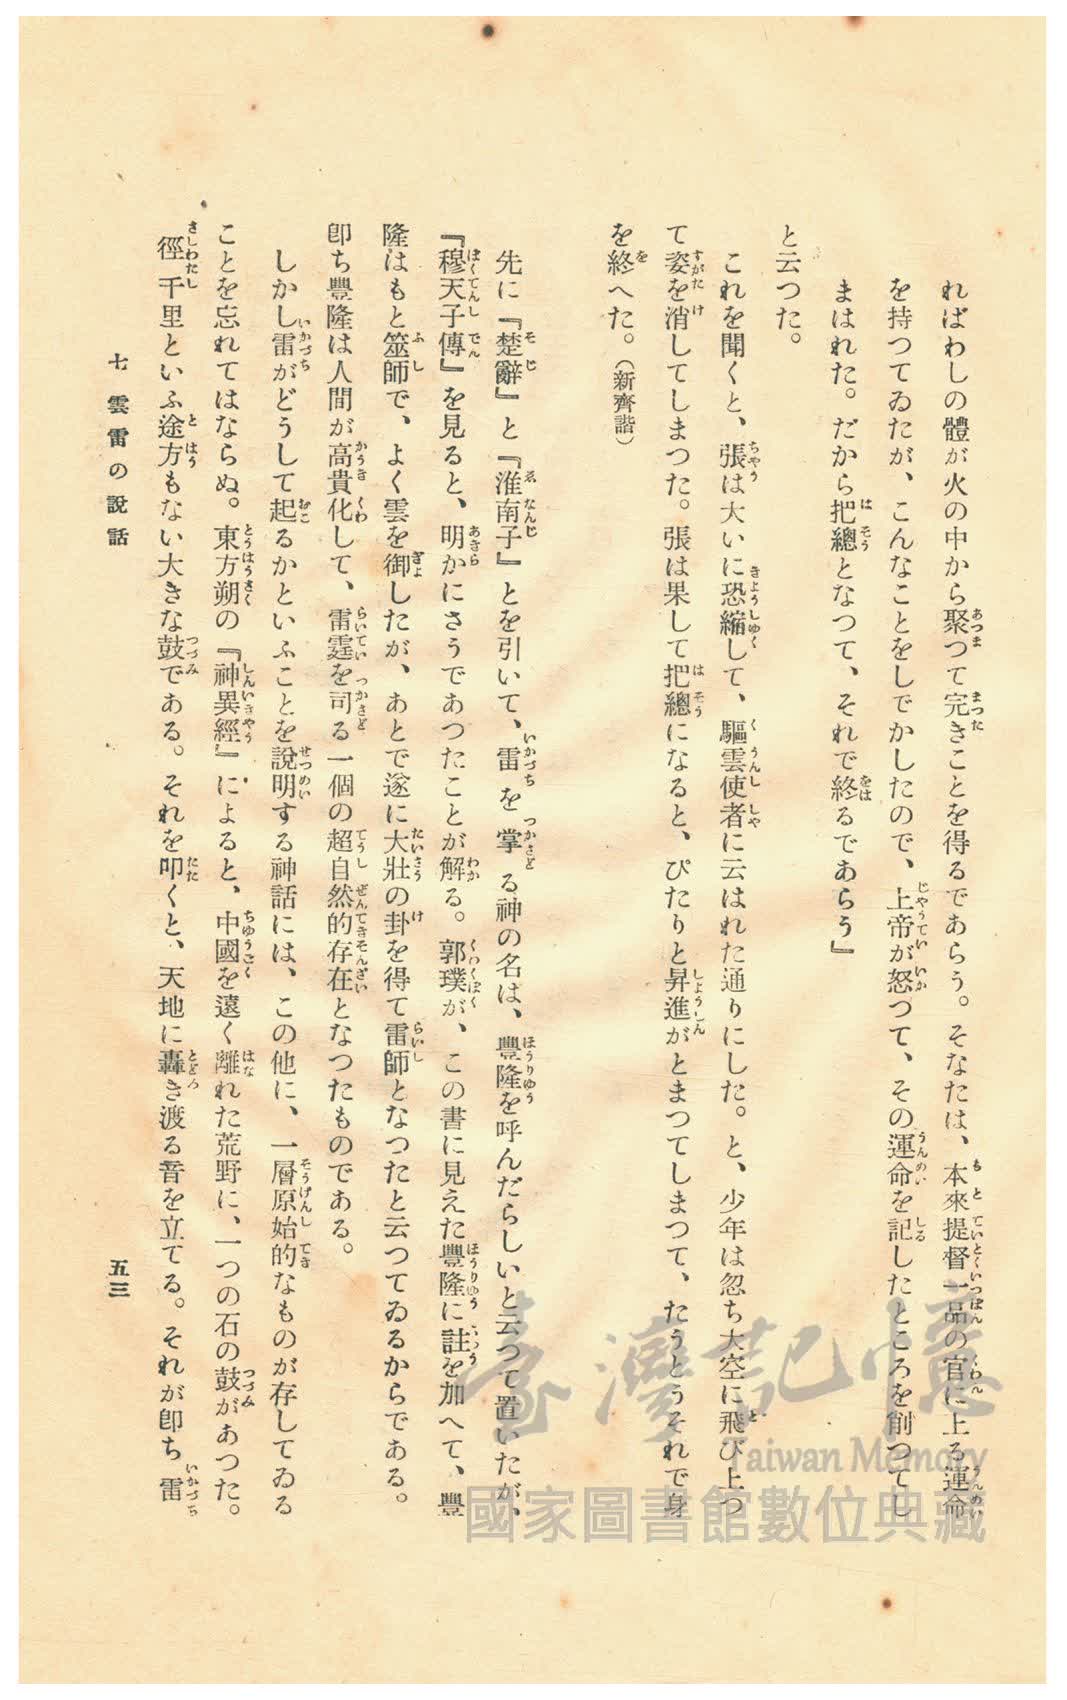 ればわしの體が火の中から聚つて完きことを得るであらう。そなたは、本來提督一品の官に上る運命
を持つてゐたが、こんなことをしでかしたので、上帝が怒つて、その運命を記したところを削つてし
まはれた。だから把總となつて、それで終るであらう』
と云つた。
これを聞くと、張は大いに恐縮して、驅雲使者に云はれた通りにした。と、少年は忽ち大空に飛び上つ
て姿を消してしまつた。張は果して把總になると、ぴたりと昇進がとまつてしまつて、たうとうそれで身
を終へた。（新齊諧）
先に『楚辭』と『淮南子』とを引いて、雷を掌る神の名は、豐隆を呼んだらしいと云つて置いたが、
『穆天子傳』を見ると、明かにさうであつたことが解る。郭璞が、この書に見えた豐隆に註を加へて、豐
隆はもと筮師で、よく雲を御したが、あとで遂に大壯の卦を得て雷師となつたと云つてゐるからである。
卽ち豐隆は人間が高貴化して、雷霆を司る一個の超自然的存在となつたものである。
しかし雷がどうして起るかといふことを說明する神話には、この他に、一層原始的なものが存してゐる
ことを忘れてはならぬ。東方朔の『神異經』によると、中國を遠く離れた荒野に、一つの石の鼓があつた。
徑千里といふ途方もない大きな鼓である。それを叩くと、天地に轟き渡る音を立てる。それが卽ち雷
七 雲雷の說話
五三
臺灣記憶
Taiwan Memory
國家圖書館數位典藏